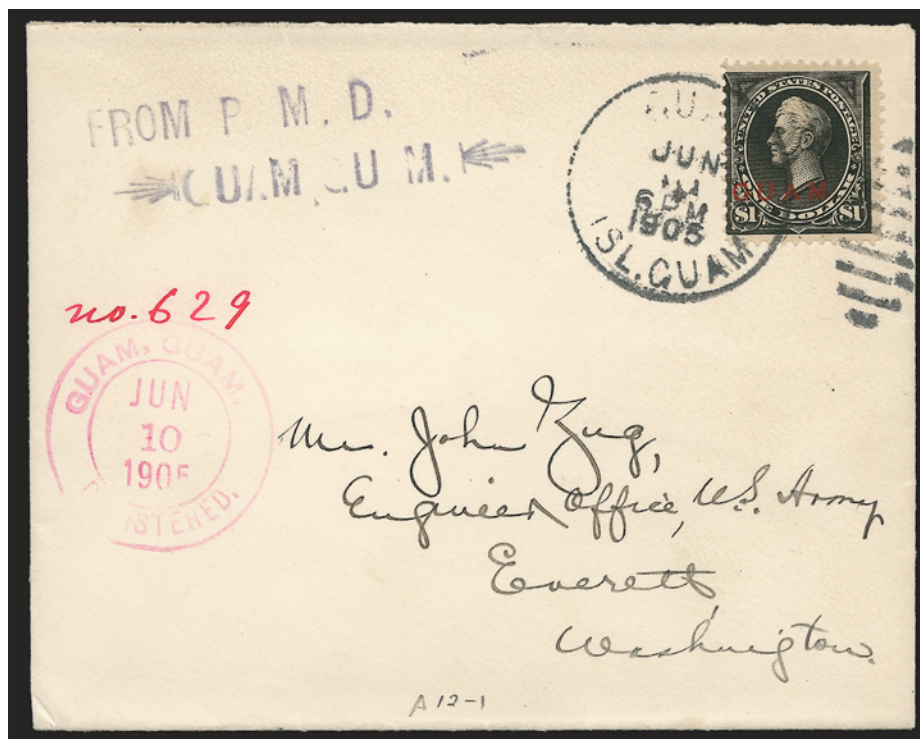 FROM P. M. D.
GUAM, GUAM.
GUAM
JUN
6 PM
1905
ISL. GUAM
UNITED STATES POSTAGE
GUAM
ONE DOLLAR
$1 $1
no. 629
GUAM, GUAM.
JUN
10
1905
REGISTERED.
Mr. John Zug,
Engineer Office, U.S. Army
Everett,
Washington.
A12-1